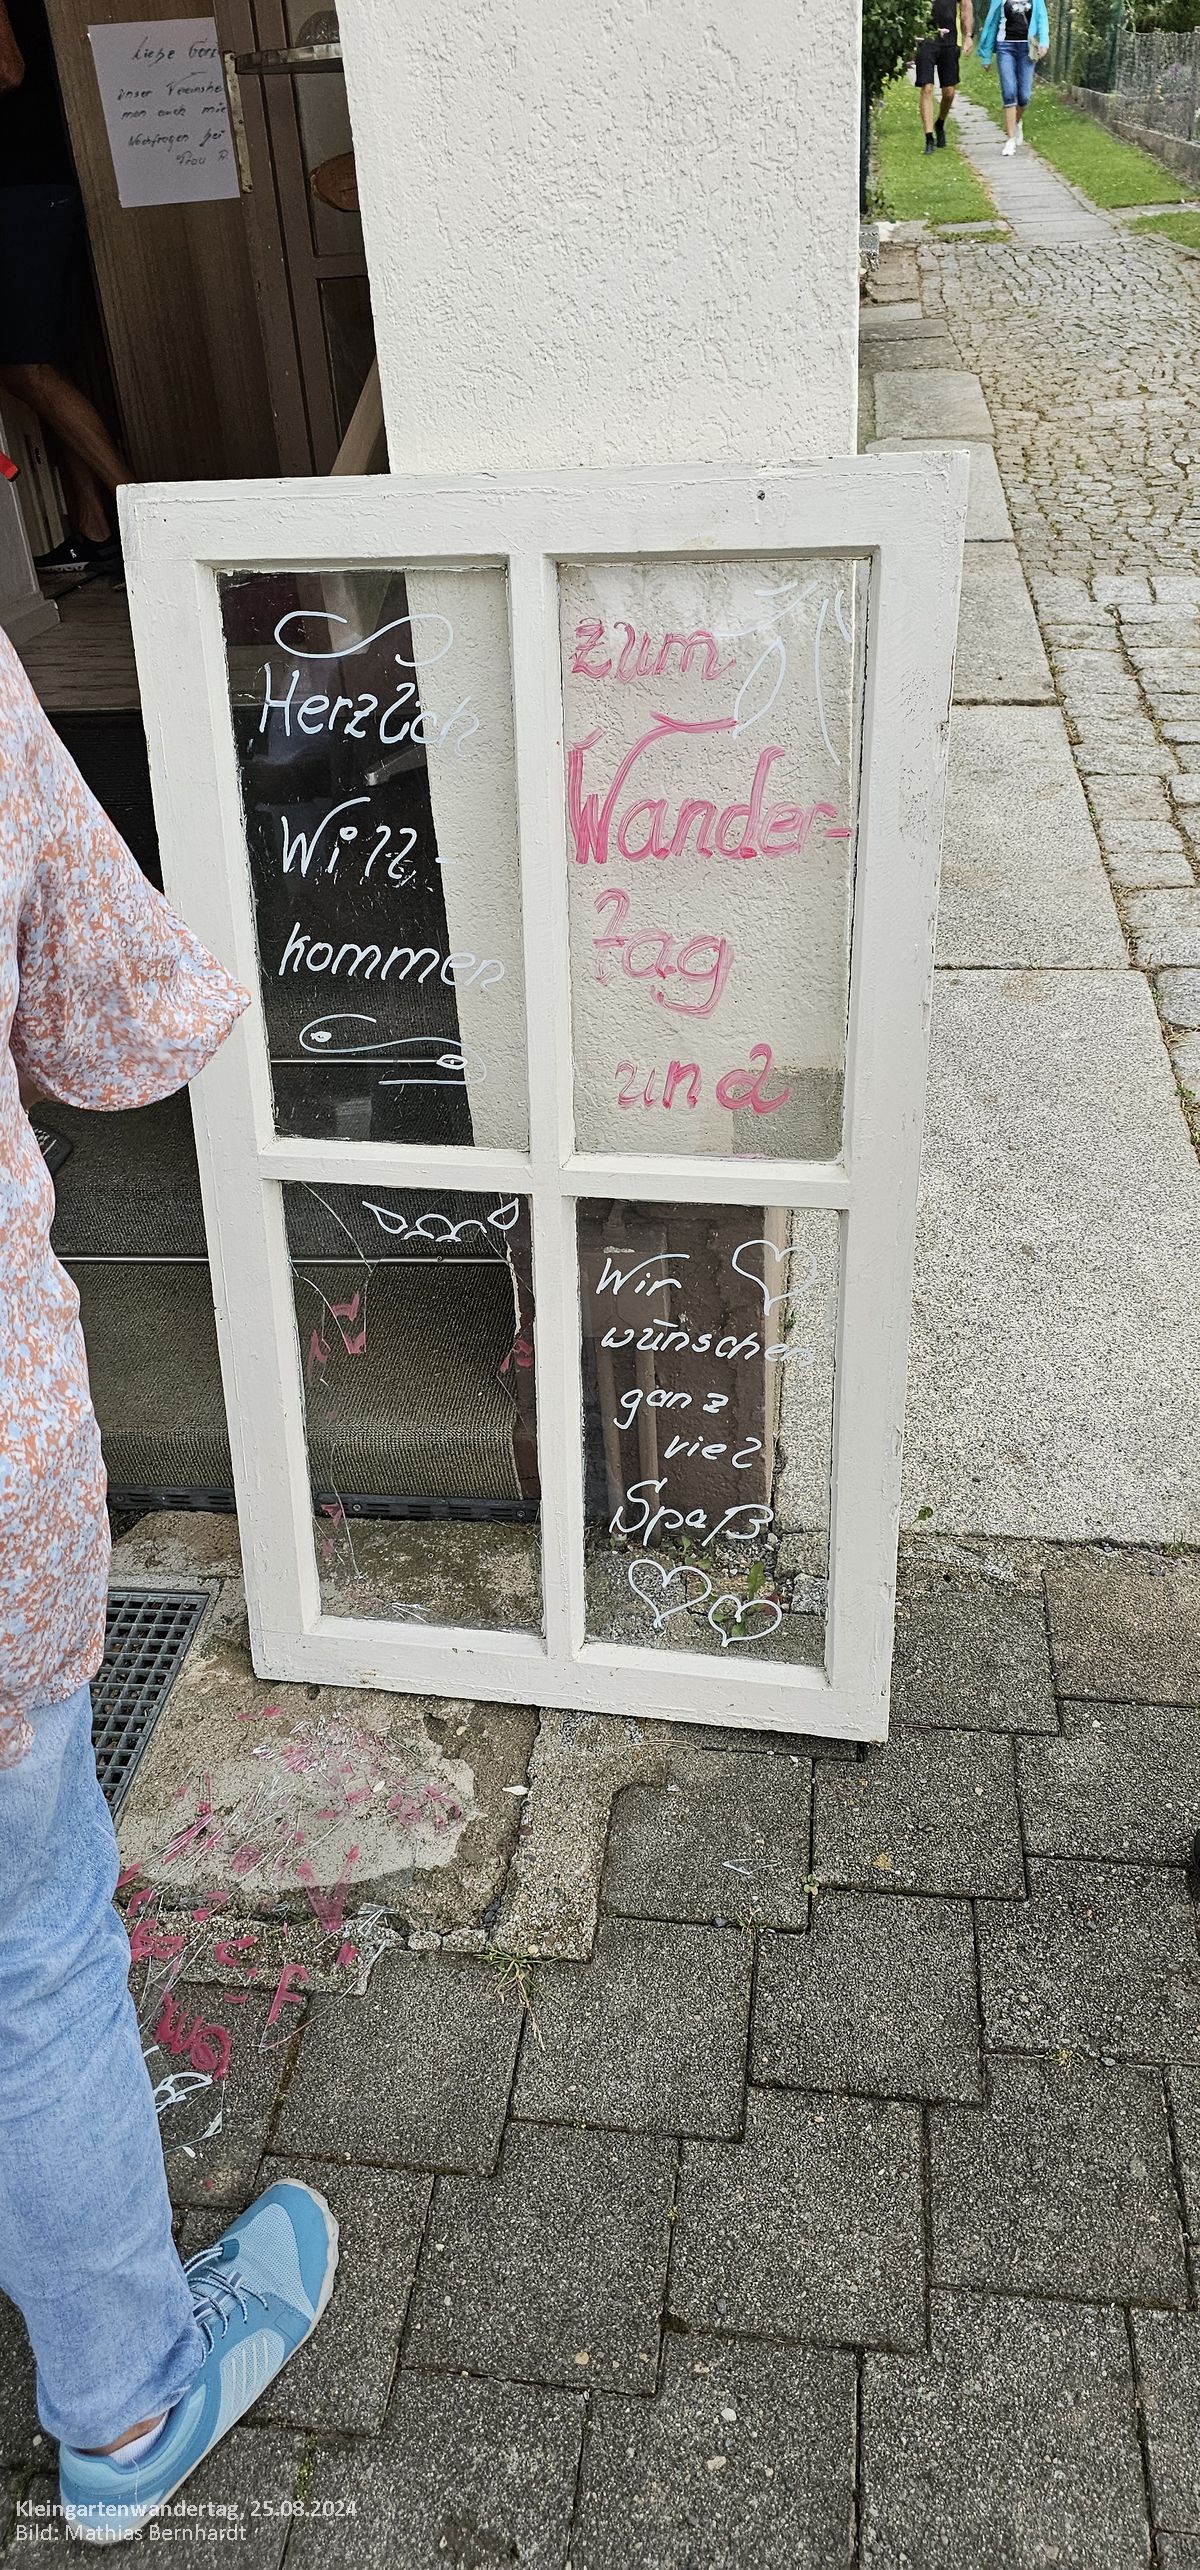 Liebe
unser
men auch
Nachfragen bei
Frau
Herzlich
Will-
kommen
zum
Wander-
tag
und
Wir
wünschen
ganz
viel
Spaß
Kleingartenwandertag, 25.08.2024
Bild: Mathias Bernhardt